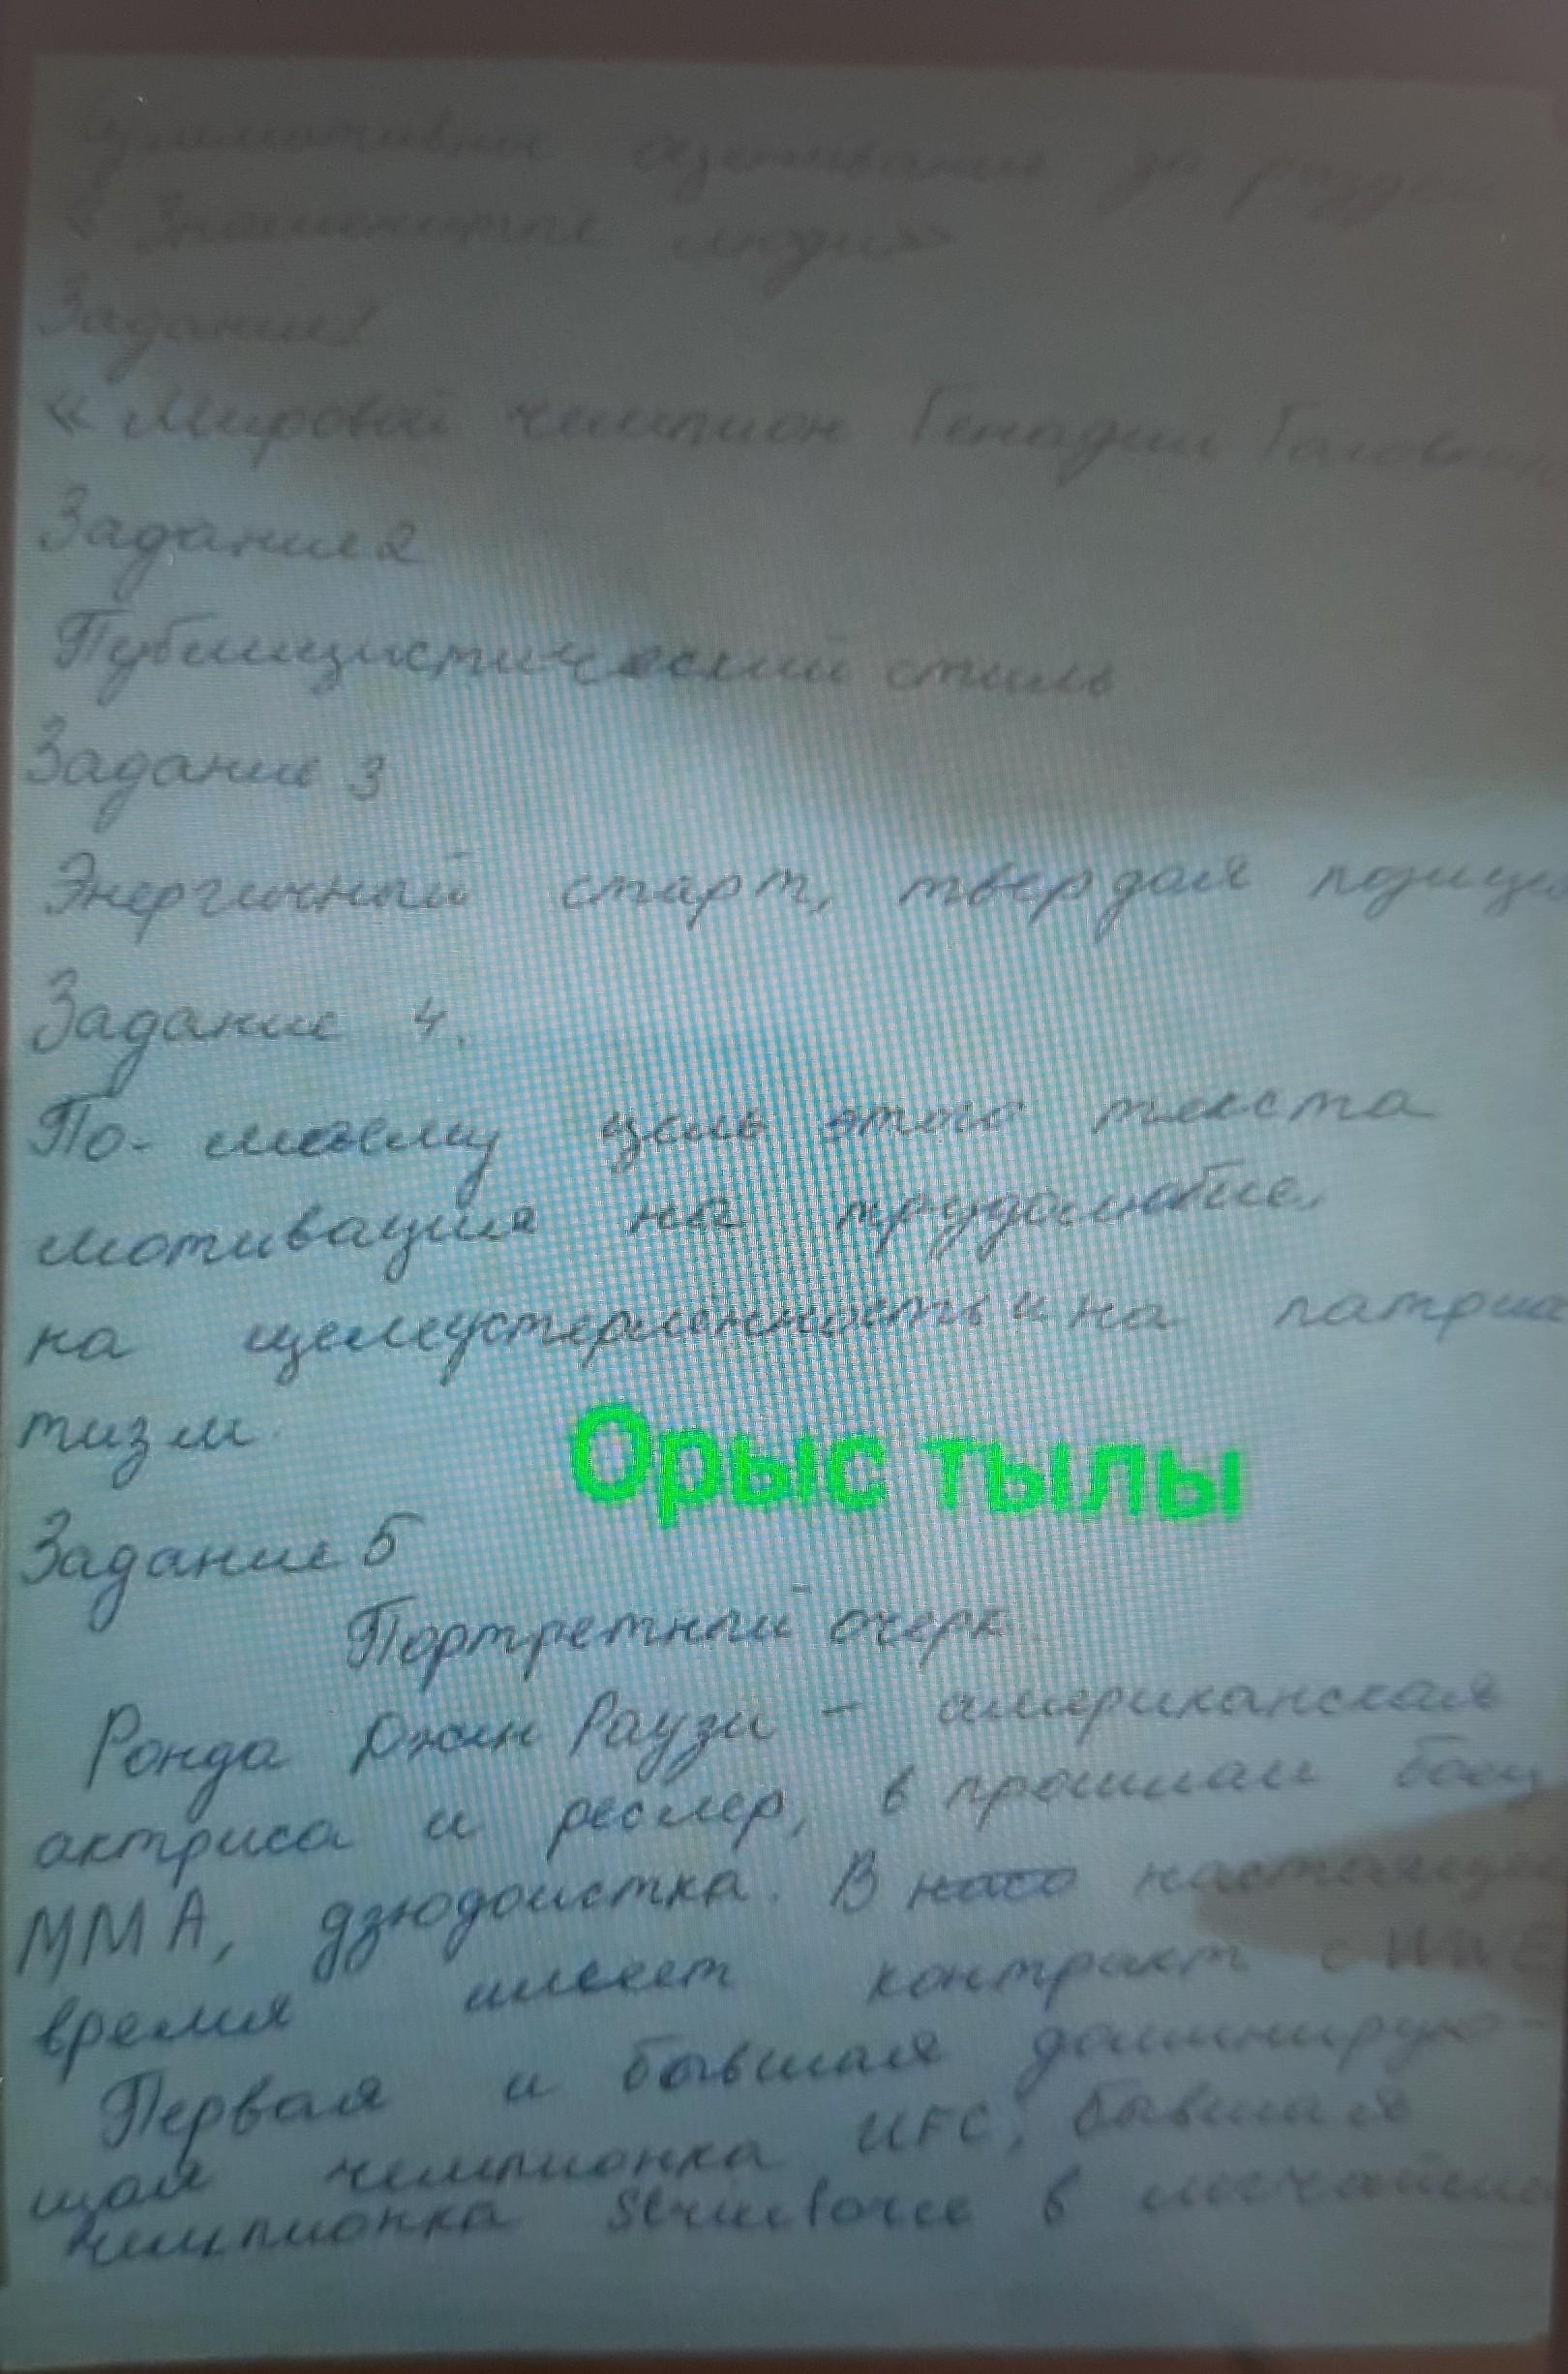 Суммативное оценивание за раздел
« Знаменитые люди»
Задание 1
« Мировой чемпион Генадий
Задание 2
Публицистический стиль
Задание 3
Энергичный старт, твердая
Задание 4.
По-моему цель этого текста
мотивация на трудолюбие,
на целеустерленность и на патрио
тизм
Орыс тылы
Задание 5
Портретный очерк
Ронда Джин Раузи - американская
актриса и реслер, в прошлом боец
ММА, дзюдоистка. В настоящее
время имеет контракт с WWE
Первая и бывшая доминирую-
щая чемпионка UFC, бывшая
чемпионка в